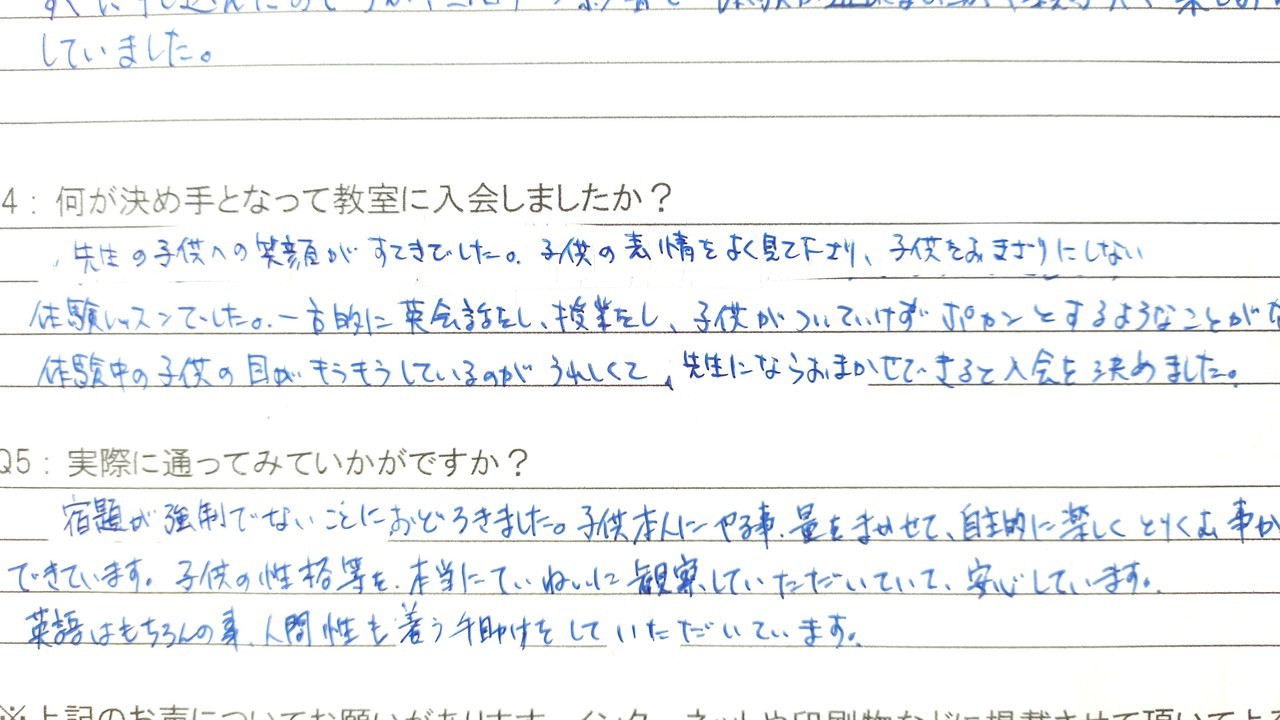 していました。
4：何が決め手となって教室に入会しましたか？
先生の子供への笑顔がすてきでした。子供の表情をよく見て下さり、子供をおきざりにしない
体験レッスンでした。一方的に英会話をし、授業をし、子供がついていけずポカンとするようなことがな
体験中の子供の目がキラキラしているのがうれしくて、先生にならおまかせできると入会を決めました。
Q5：実際に通ってみていかがですか？
宿題が強制でないことにおどろきました。子供本人にやる事、量をまかせて、自主的に楽しくとりくむ事が
できています。子供の性格等を、本当にていねいに観察していただいていて、安心しています。
英語はもちろんの事、人間性も養う手助けをしていただいています。
※上記のお声についてお願いがあります。インターネットや印刷物などに掲載させて頂いてよろ